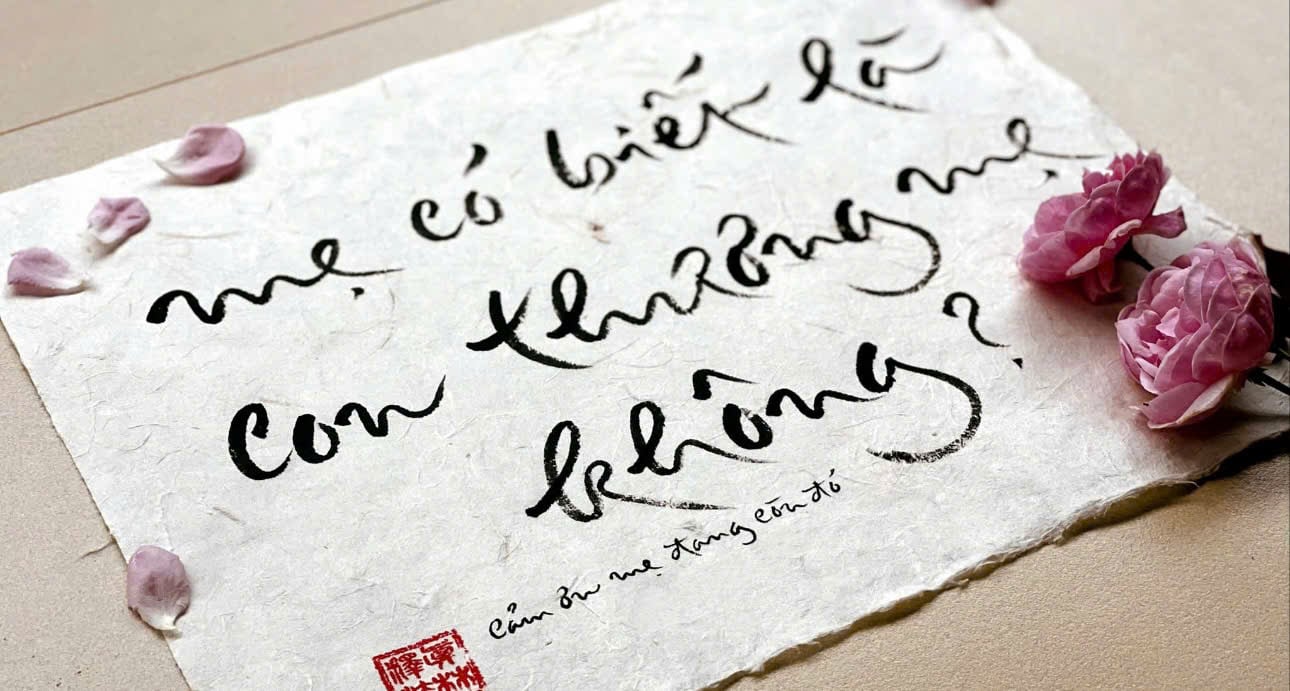 mẹ có biết là
con thương mẹ
không?
cảm ơn mẹ đang còn đó